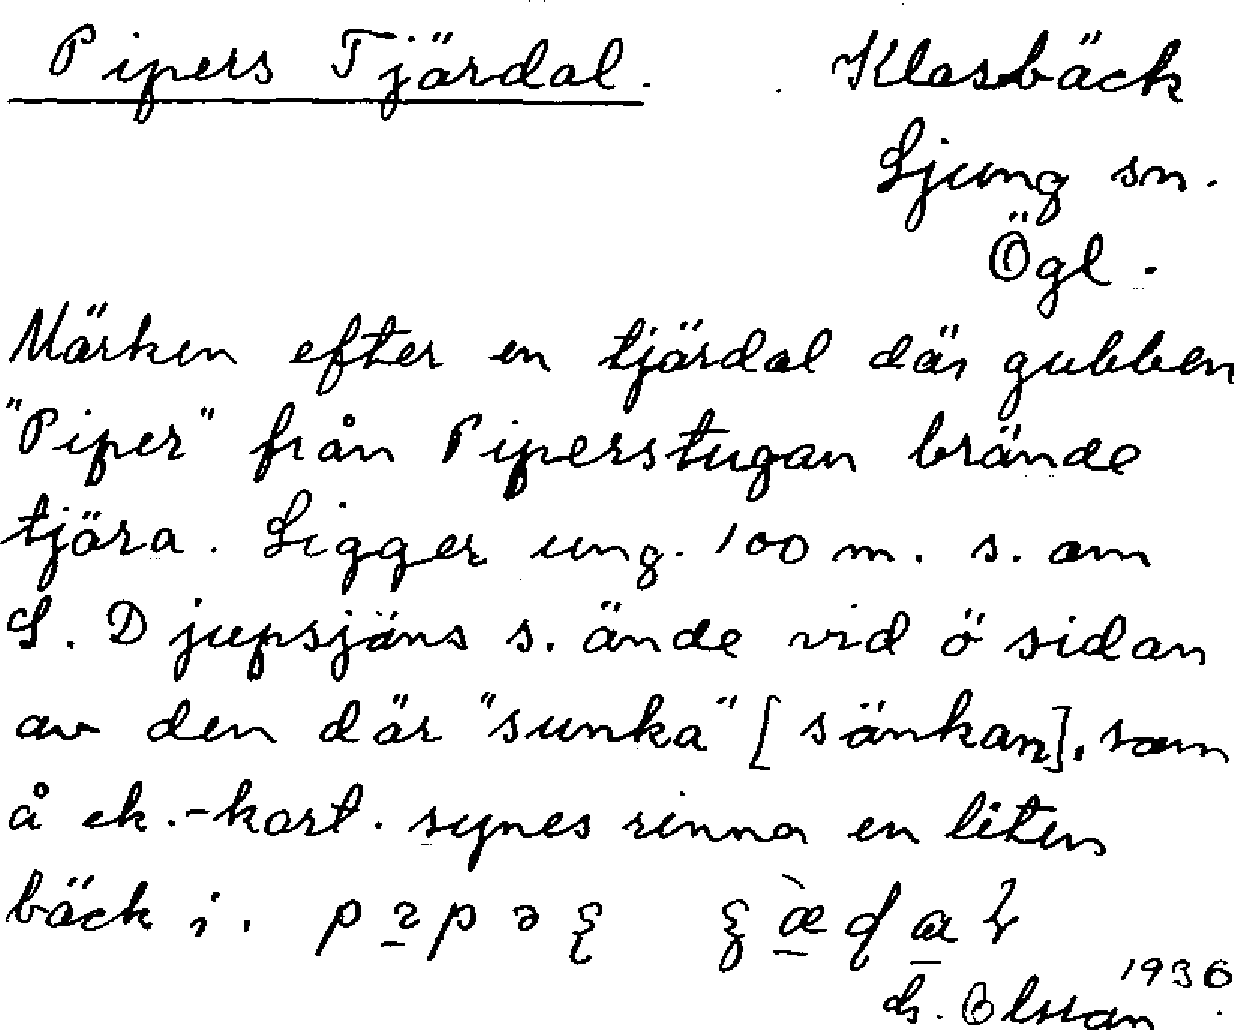 Pipers Tjärdal. Klasbäck
Ljung sn.
Ögl.
Märken efter en tjärdal där gubben
"Piper" från Piperstugan brände
tjära. Ligger ung. 100 m. s. om
S. Djupsjöns s. ände vid ö sidan
av den där "sunka" [sänkan], som
å ek.-kart. synes rinna en liten
bäck i.
1936
Olsson